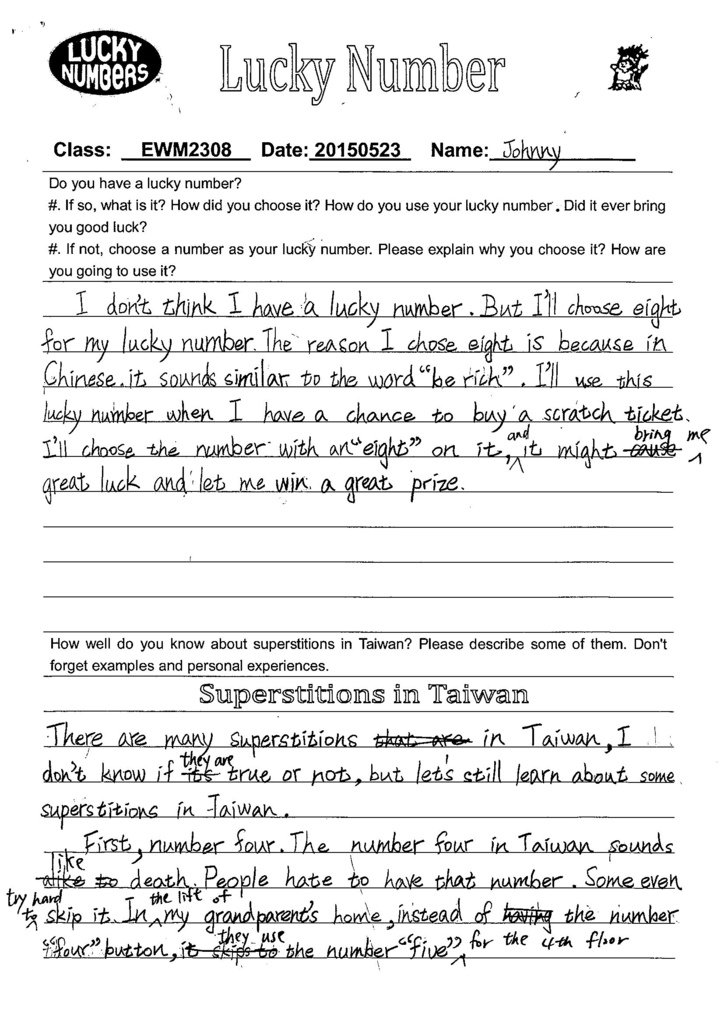 LUCKY
NUMBERS
Lucky Number
Class: EWM2308 Date: 20150523 Name: Johnny
Do you have a lucky number?
#. If so, what is it? How did you choose it? How do you use your lucky number. Did it ever bring
you good luck?
#. If not, choose a number as your lucky number. Please explain why you choose it? How are
you going to use it?
I don't think I have a lucky number. But I'll choose eight
for my lucky number. The reason I chose eight is because in
Chinese. it sounds similar to the word "be rich". I'll use this
lucky number when I have a chance to buy a scratch ticket.
and bring me
I'll choose the number with an "eight" on it, it might cause
great luck and let me win a great prize.
How well do you know about superstitions in Taiwan? Please describe some of them. Don't
forget examples and personal experiences.
Superstitions in Taiwan
There are many superstitions that are in Taiwan, I
they are
don't know if it's true or not, but let's still learn about some
superstitions in Taiwan.
First, number four. The number four in Taiwan sounds
like
alike to death. People hate to have that number. Some even
try hard the lift of
to skip it. In my grandparent's home, instead of having the number
they use
"four" button, it skips to the number "five" for the 4th floor